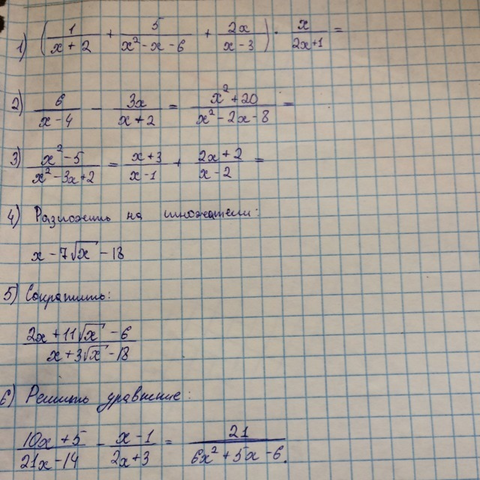 1) (1/(x+2) + 5/(x²-x-6) + 2x/(x-3)) · x/(2x+1) =
2) 6/(x-4) - 3x/(x+2) = (x²+20)/(x²-2x-8) =
3) (x²-5)/(x²-3x+2) = (x+3)/(x-1) + (2x+2)/(x-2) =
4) Разложить на множатели:
x-7√x-18
5) Сократить:
(2x+11√x-6)/(x+3√x-18)
6) Решить уравнение:
(10x+5)/(21x-14) - (x-1)/(2x+3) = 21/(6x²+5x-6).